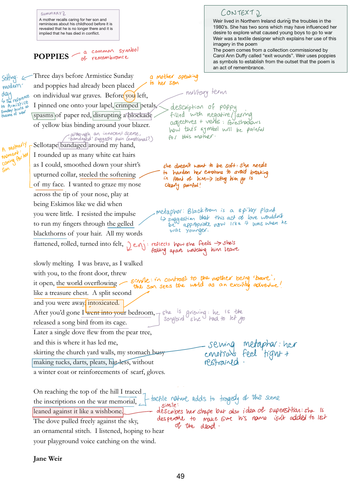 SUMMARY:
A mother recalls caring for her son and
reminisces about his childhood before it is
revealed that he is no longer there and it is
implied that he has died in conflict.
CONTEXT:
Weir lived in Northern Ireland during the troubles in the
1980's. She has two sons which may have influenced her
desire to explore what caused young boys to go to war
Weir was a textile designer which explains her use of this
imagery in the poem
The poem comes from a collection commissioned by
Carol Ann Duffy called "exit wounds". Weir uses poppies
as symbols to establish from the outset that the poem is
an act of remembrance.
POPPIES
a common symbol
of remembrance
Three days before Armistice Sunday
and poppies had already been placed
on individual war graves. Before you left,
I pinned one onto your lapel, crimped petals,
spasms of paper red, disrupting a blockade
of yellow bias binding around your blazer.
a mother speaking
to her son
military term
description of poppy
filled with negative/
adjectives + verbs :
how this symbol will be painful
for this mother.
Sellotape bandaged around my hand,
I rounded up as many white cat hairs
as I could, smoothed down your shirt's
upturned collar, steeled the softening
of my face. I wanted to graze my nose
across the tip of your nose, play at
being Eskimos like we did when
you were little. I resisted the impulse
to run my fingers through the gelled
blackthorns of your hair. All my words
flattened, rolled, turned into felt,
she doesn't want to be soft. She needs
to harden her emotions to avoid breaking
in front of him
clearly painful!
metaphor: Blackthorn is a spikey plant
suggesting that this act of love wouldn't
be appropriate now like it was when he
was younger.
reflects how she feels → she's
falling apart watching him leave.
slowly melting. I was brave, as I walked
with you, to the front door, threw
it open, the world overflowing
like a treasure chest. A split second
and you were away, intoxicated.
After you'd gone I went into your bedroom,
released a song bird from its cage.
Later a single dove flew from the pear tree,
and this is where it has led me,
skirting the church yard walls, my stomach busy
making tucks, darts, pleats, hat-less, without
a winter coat or reinforcements of scarf, gloves.
simile: in contrast to the mother being 'brave',
the son sees the world as an exciting adventure!
she is grieving: he is the
songbird she had to let go
sewing metaphor: her
emotions feel tight +
restrained.
On reaching the top of the hill I traced
the inscriptions on the war memorial,
leaned against it like a wishbone.
The dove pulled freely against the sky,
an ornamental stitch. I listened, hoping to hear
your playground voice catching on the wind.
tactile nature adds to tragedy of this scene
simile:
describes her shape but also idea of superstition: she is
desperate to make sure his name isn't added to list
of the dead.
Jane Weir
49